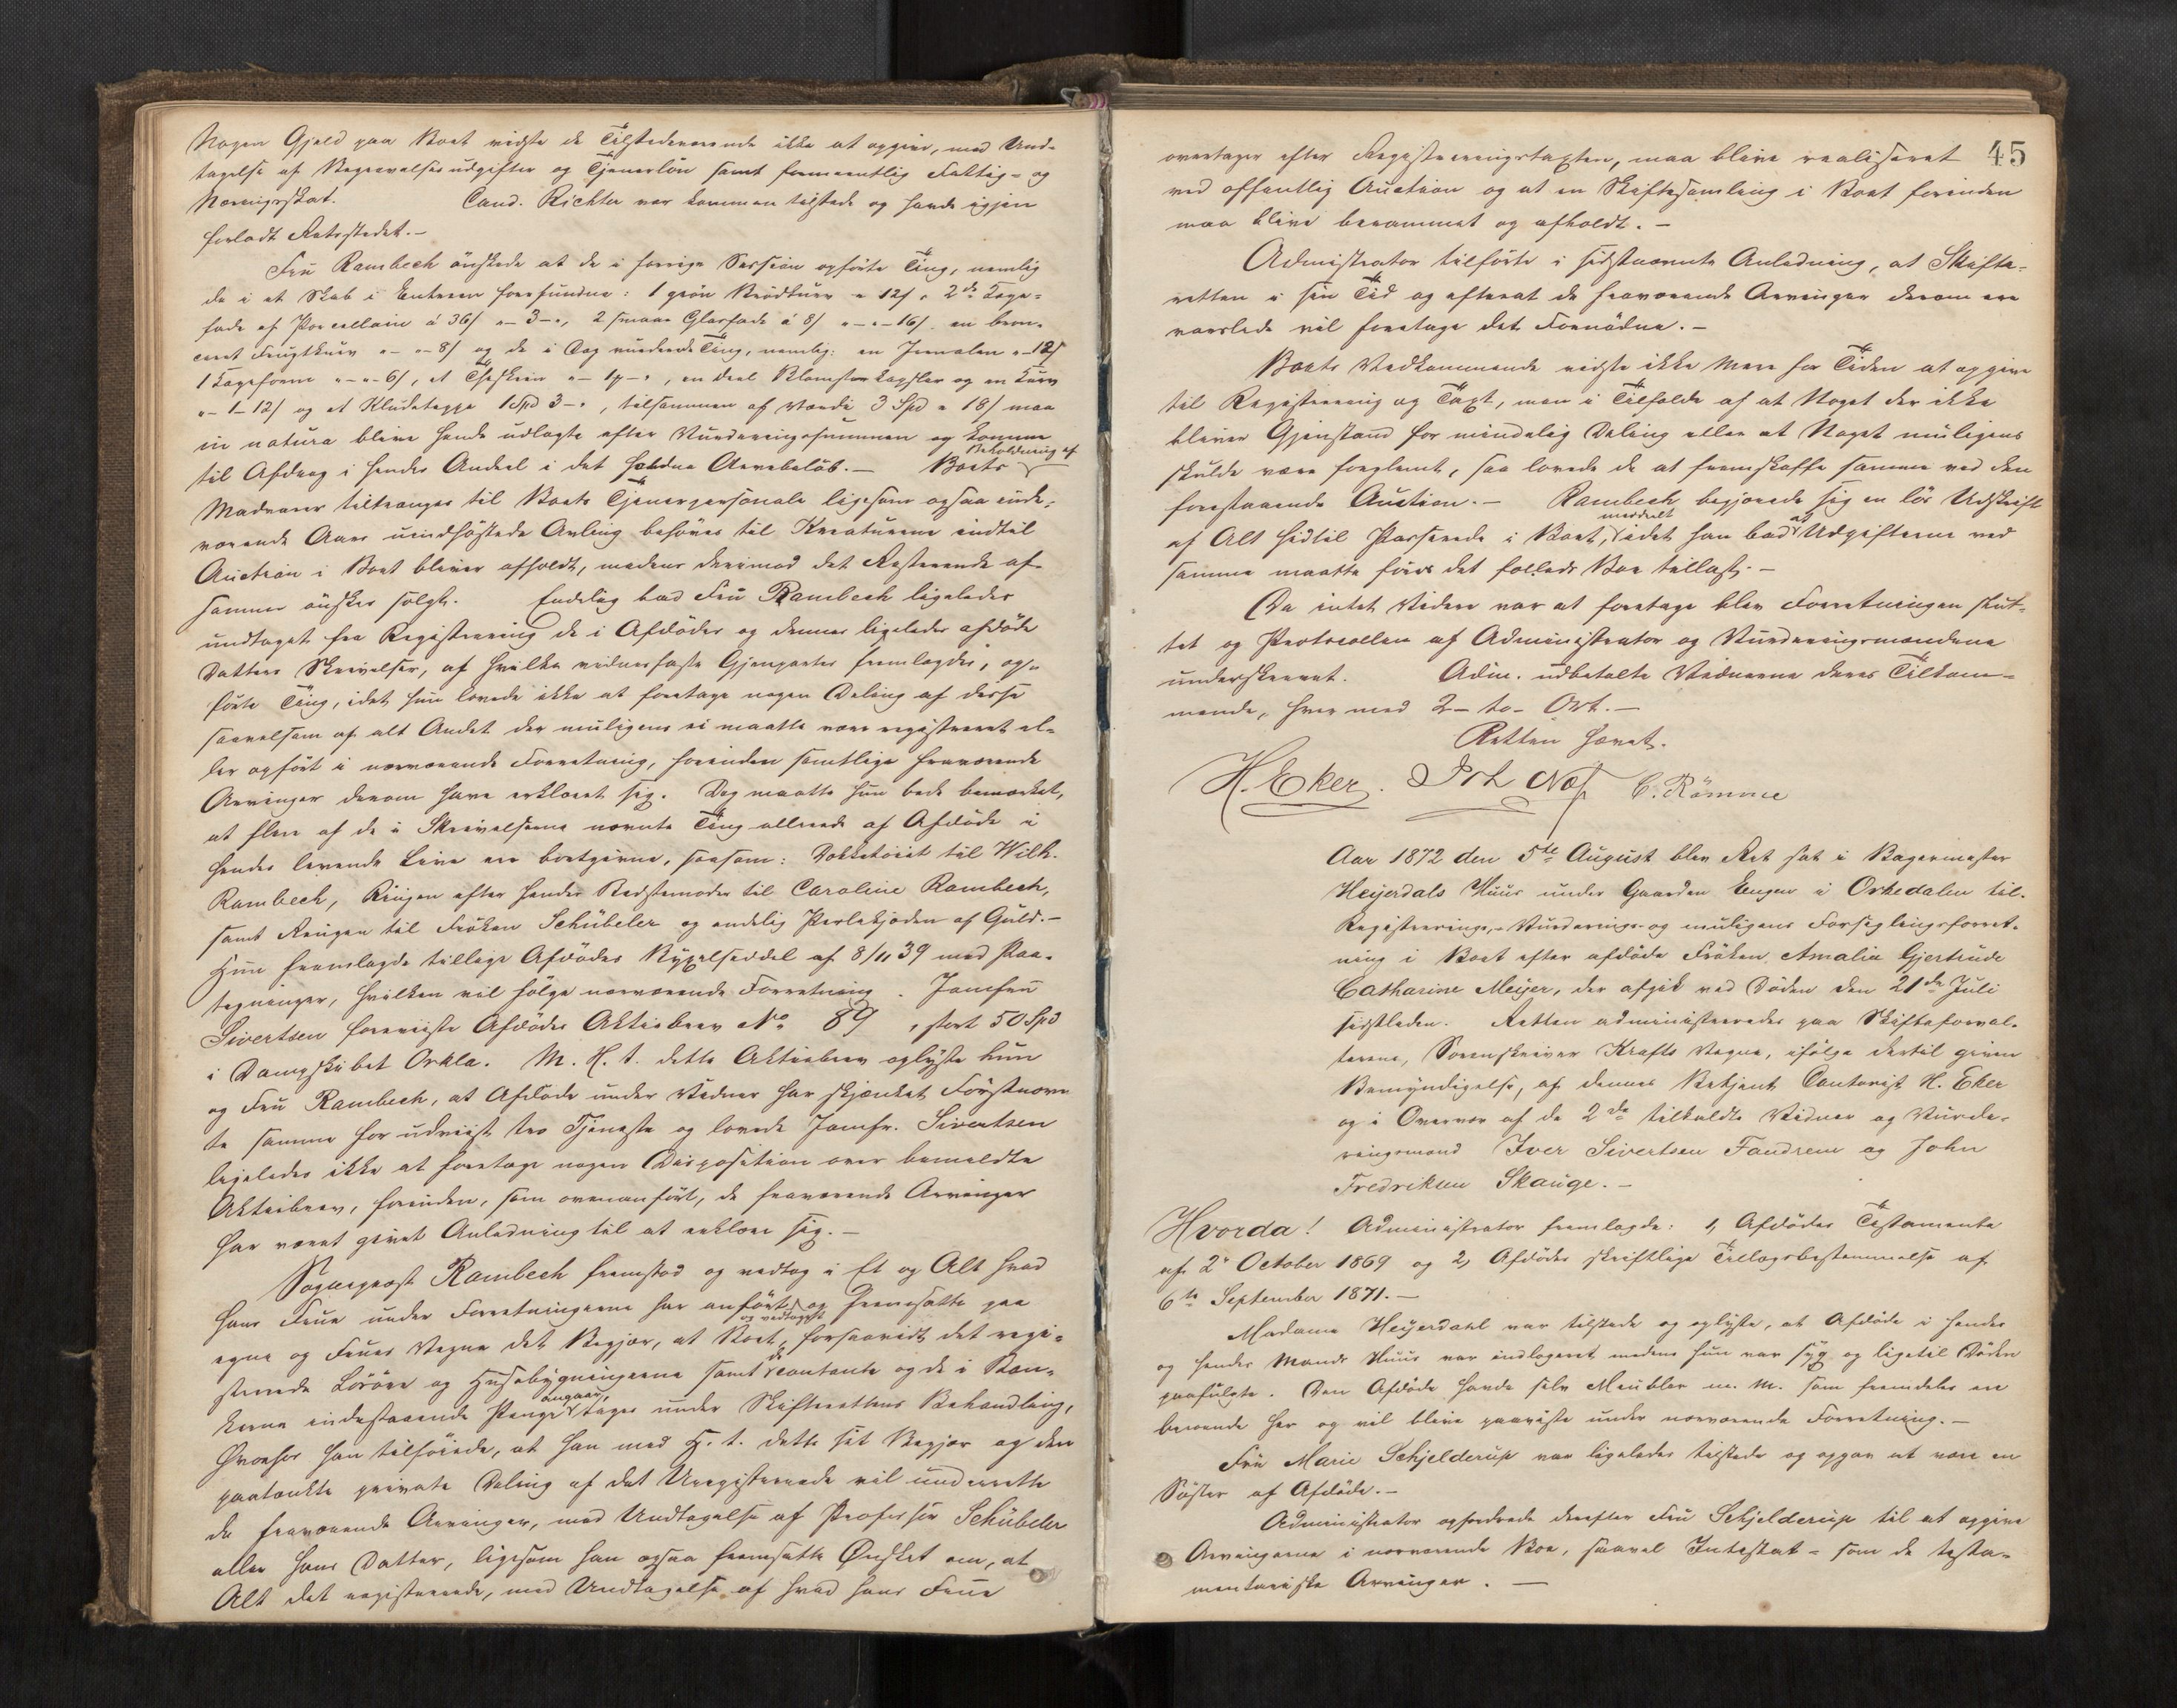 Nogen Gjeld paa Boet vidste de Tilstedeværende ikke at opgive, med Und-
tagelse af Begravelsesudgifter og Tjenerløn samt formeentlig Fattig- og
Næringsskat. Cand. Richter var kommen tilstede og havde igjen
forladt Retsstedet.-
Fru Rambech ønskede at de i forrige Session opførte Ting, nemlig
de i et Skab i Entreen forefundne: 1 grøn Brødkurv " 12/ " 2de Kage-
fade af Porcellain á 36/ "- 3-", 2 smaae Glasfade á 8/ "-"-16/. en bron-
ceret Frugtkurv "- "-8/ og de i Dag vurderede Ting, nemlig: en "-12/
1 Kageform "-"-6/, et Theskrin "- 1-", en Deel Blomster og en Kurv
"-1-12/ og et Kludeteppe 1 Spd 3-", tilsammen af Værdi 3 Spd " 18/ maa
in natura blive hende udlagte efter Vurderingssummen og komme
til Afdrag i hendes Andeel i det faldne Arvebeløb.- Boets Beholdning af
Madvarer tiltrænges til Boets Tjenerpersonale ligesom ogsaa inde-
værende Aars uindhøstede Avling behøves til Kreaturerne indtil
Auction i Boet bliver afholdt, medens derimod det Resterende af
samme ønskes solgt. Endelig bad Fru Rambech ligeledes
undtaget fra Registrering de i Afdødes og dennes ligeledes afdøde
Datters Skrivelser, af hvilke vidnesfaste Gjenparter fremlagdes, op-
førte Ting, idet hun lovede ikke at foretage nogen Deling af disse
saavelsom af alt Andet der muligens ei maatte være registreret el-
ler opført i nærværende Forretning, forinden samtlige fraværende
Arvinger derom have erklæret sig. Dog maatte hun bede bemærket,
at flere af de i Skrivelserne nævnte Ting allerede af Afdøde i
hendes levende Live ere bortgivne, saasom: til Wilh.
Rambech, Ringen efter hendes Bedstemoder til Caroline Rambech,
samt Ringen til Frøken Schübeler og endelig Perlekjæden af Guld.-
Hun fremlagde tillige Afdødes af 8/11 39 med Paa-
tegninger, hvilken vil følge nærværende Forretning. Jomfru
Sivertsen foreviiste Afdødes Aktiebrev No 89, stort 50 Spd
i Dampskibet Orkla. M. H. t. dette Aktiebrev oplyste hun
og Fru Rambech, at Afdøde under Vidner har skjænket Førstnævn-
te samme for udviist tro Tjeneste og lovede Jomfr. Sivertsen
ligeledes ikke at foretage nogen Disposition over bemeldte
Aktiebrev, forinden, som ovenanført, de fraværende Arvinger
har været givet Anledning til at erklære sig.-
Sogneprest Rambech fremstod og vedtog i Et og Alt hvad
hans Frue under Forretningerne har anført og fremsatte paa
egne og Frues Vegne det Begjær, at Boet, og vedtaget forsaavidt det regi-
strerede Løsøre og Huusbygningerne samt de contante og de i Ban-
kerne indestaaende Penge angaar, tages under Skifterettens Behandling,
hvorfor han tilføiede, at han med H. t. dette sit Begjær og den
paatænkte private Deling af det Uregistrerede vil underrette
de fraværende Arvinger, med Undtagelse af Professor Schübeler
eller hans Datter, ligesom han ogsaa fremsatte Ønsket om, at
Alt det registrerede, med Undtagelse af hvad hans Frue
45
overtager efter Registreringstaxten, maa blive realiseret
ved offentlig Auction og at en Skiftesamling i Boet forinden
maa blive berammet og afholdt.-
Administrator tilførte i sidstnævnte Anledning, at Skifte-
retten i sin Tid og efterat de fraværende Arvinger derom ere
varslede vil foretage det Fornødne.-
Boets Vedkommende vidste ikke Mere for Tiden at opgive
til Registrering og Taxt, men i Tilfælde af at Noget der ikke
bliver Gjenstand for mindelig Deling eller at Noget muligens
skulde være forglemt, saa lovede de at fremskaffe samme ved den
forestaaende Auction.- Rambech begjærede sig en løs Udskrift
af Alt hidtil Passerede i Boet, meddelt idet han bad at Udgifterne ved
samme maatte føres det fælleds Boe tillast.-
Da intet Videre var at foretage blev Forretningen slut-
tet og Protocollen af Administrator og Vurderingsmændene
underskrevet. Adm. udbetalte Vidnerne deres Tilkom-
mende, hver med 2- to- Ort.-
Retten hævet.
H. Eker. Joh Næss C. Rømme
Aar 1872 den 5te August blev Ret sat i Bagermester
Heyerdals Huus under Gaarden Engen i Orkedalen til
Registrerings,- Vurderings- og muligens Forseglingsforret-
ning i Boet efter afdøde Frøken Amalia Gjertrude
Catharine Meyer, der afgik ved Døden den 21de Juli
sidstleden. Retten administreredes paa Skifteforval-
terens, Sorenskriver Krafts Vegne, ifølge dertil given
Bemyndigelse, af dennes Betjent Contorist H. Eker
og i Overvær af de 2de tilkaldte Vidner og Vurde-
ringsmænd Iver Sivertsen Fandrem og John
Fredriksen Skauge.-
Hvorda! Administrator fremlagde: 1, Afdødes Testamente
af 2. October 1869 og 2, Afdødes skriftlige Tillægsbestemmelse af
6te September 1871.-
Madame Heyerdahl var tilstede og oplyste, at Afdøde i hendes
og hendes Mands Huus var indlogeret medens hun var syg og ligetil Døden
paafulgte. Den Afdøde havde selv Meubler m. M. som fremdeles ere
beroende her og vil blive paaviste under nærværende Forretning.-
Fru Marie Schjelderup var ligeledes tilstede og opgav at være en
Søster af Afdøde.-
Administrator opfordrede derefter Fru Schjelderup til at opgive
Arvingerne i nærværende Boe, saavel Intestat- som de testa-
mentariske Arvinger.-